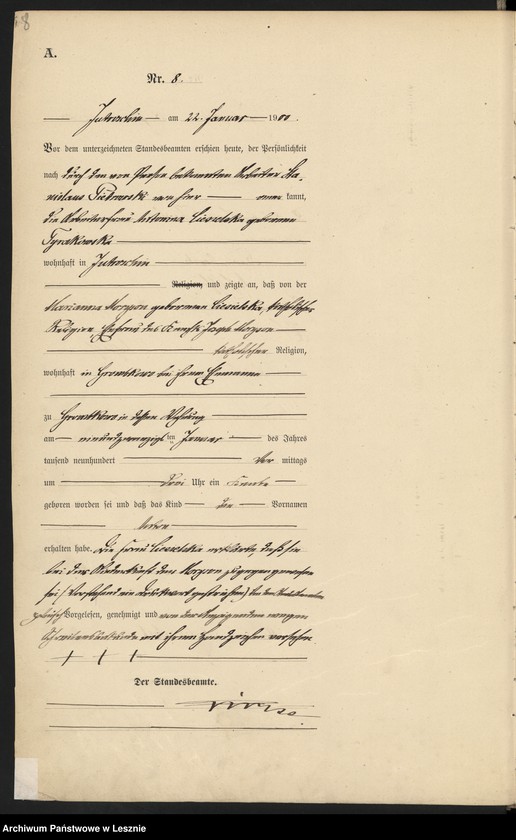 8
A.
Nr. 8.
Jutroschin am 22. Januar 1900.
Vor dem unterzeichneten Standesbeamten erschien heute, der Persönlichkeit
nach durch den von Person bekannten Arbeiter Sta-
nislaus von hier kannt,
die Arbeiterfrau Antonina Ciesielska geborene
Tyrakowska
wohnhaft in Jutroschin
Religion, und zeigte an, daß von der
Marianna geborenen Ciesielska, katholischer
Religion, Ehefrau des Joseph
katholischer Religion,
wohnhaft in bei ihrem Ehemanne
zu in dessen Wohnung
am im Januar des Jahres
tausend neunhundert Vor mittags
um drei Uhr ein Knabe
geboren worden sei und daß das Kind den Vornamen
Anton
erhalten habe. Die Frau Ciesielska erklärte, daß sie
bei der Niederkunft der zugegen gewesen
sei. (Vorstehend ein Druckwort gestrichen)
Vorgelesen, genehmigt und von der Anzeigenden wegen
mit ihrem Handzeichen versehen
+ + +
Der Standesbeamte.
Archiwum Państwowe w Lesznie